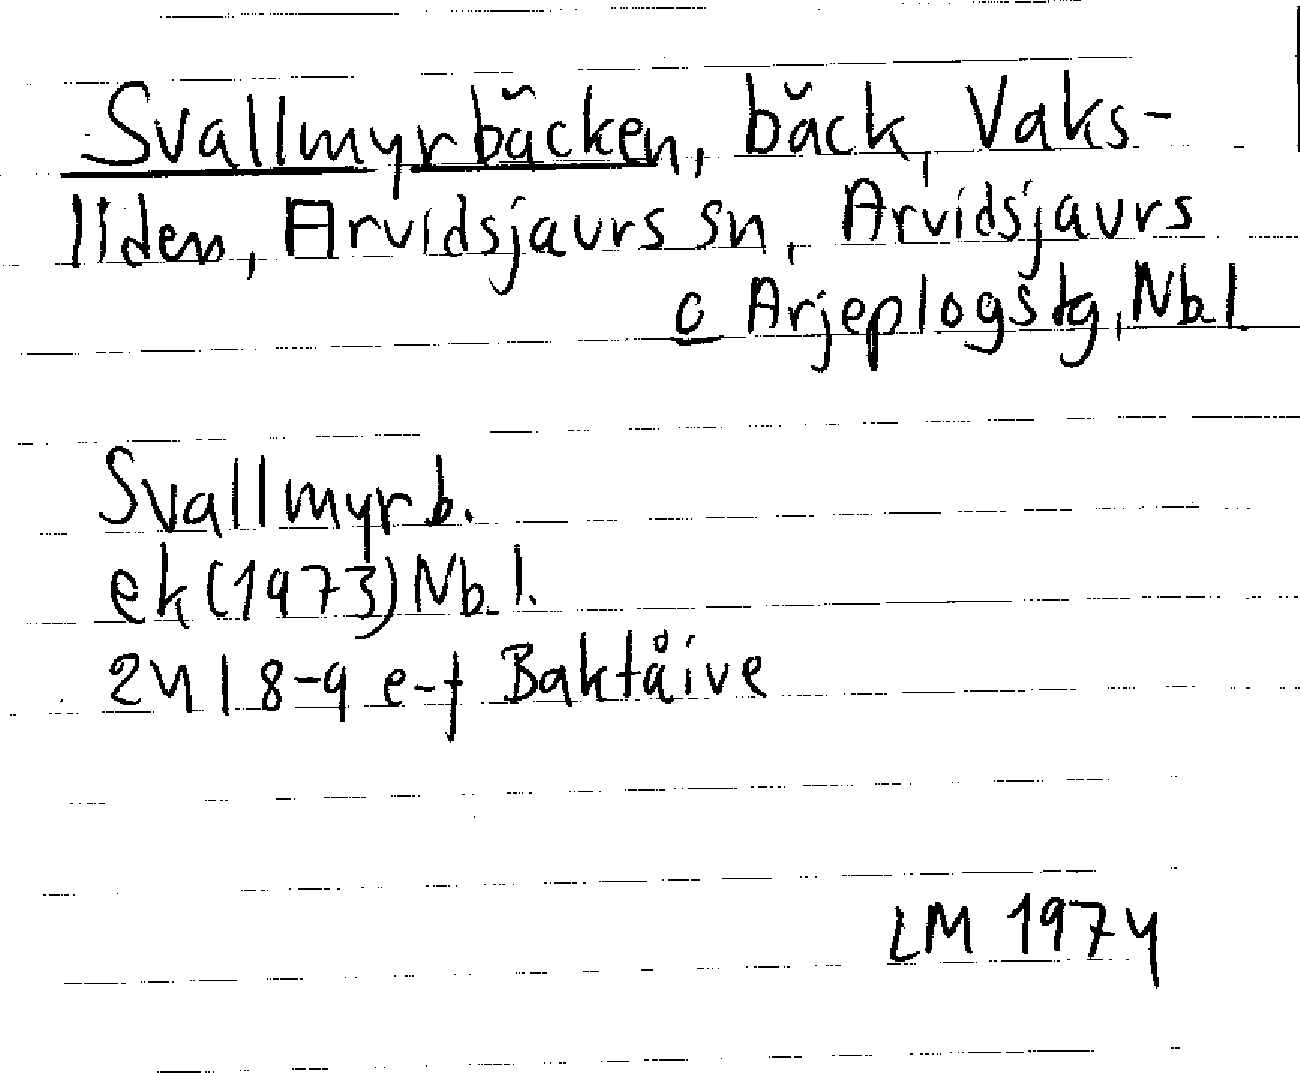 Svallmyrbäcken, bäck, Vaks-
liden, Arvidsjaurs sn, Arvidsjaurs
o Arjeplogs tg, Nb.l.
Svallmyrb.
ek (1973) Nb.l.
24 I 8-9 e-f Baktåive
LM 1974